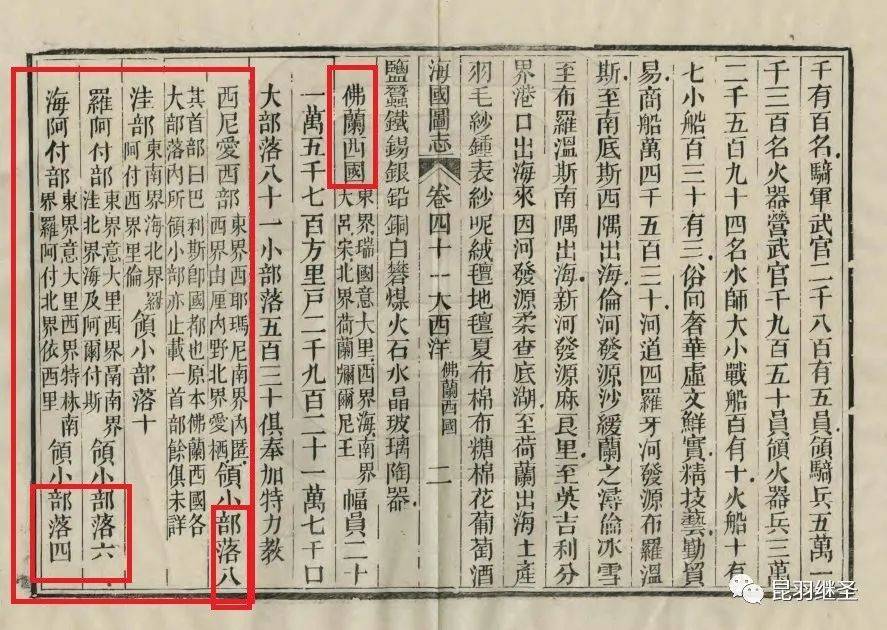 千有百名騎軍武官二千八百有五員領騎兵五萬一
千三百名火器營武官千九百五十員領火器兵三萬
二千五百九十四名水師大小戰船百有十火船十有
七小船百三十有三俗尚奢華虛文鮮實精技藝勤貿
易商船萬四千五百三十河道四羅牙河發源布羅溫
斯至南底斯西隅出海倫河發源沙緩蘭之潯倫冰雪
至布羅溫斯南隅出海新河發源麻艮里至英吉利分
界港口出海來因河發源柔查底湖至荷蘭出海土產
羽毛紗鍾表紗呢絨氊地氊夏布棉布糖棉花葡萄酒
鹽蠶鐵錫銀鉛銅白礬煤火石水晶玻璃陶器
海國圖志 卷四十一 大西洋 佛蘭西國 二
佛蘭西國 東界瑞國意大里西界海南界
大呂宋北界荷蘭彌爾尼王 幅員二十
一萬五千七百方里戶二千九百二十一萬七千口
大部落八十一小部落五百三十俱奉加特力教
西尼愛西部 東界西耶瑪尼南界內匿
西界由厘內野北界愛栖 領小部落八
其首部曰巴利斯卽國都也原本佛蘭西國各
大部落內所領小部亦止載一首部餘俱未詳
洼部 東南界海北界羅
阿付西界里倫 領小部落十
羅阿付部 東界意大里西界鬲南界
洼北界海及阿爾付斯 領小部落六
海阿付部 東界意大里西界特林南
界羅阿付北界依西里 領小部落四
昆羽继圣